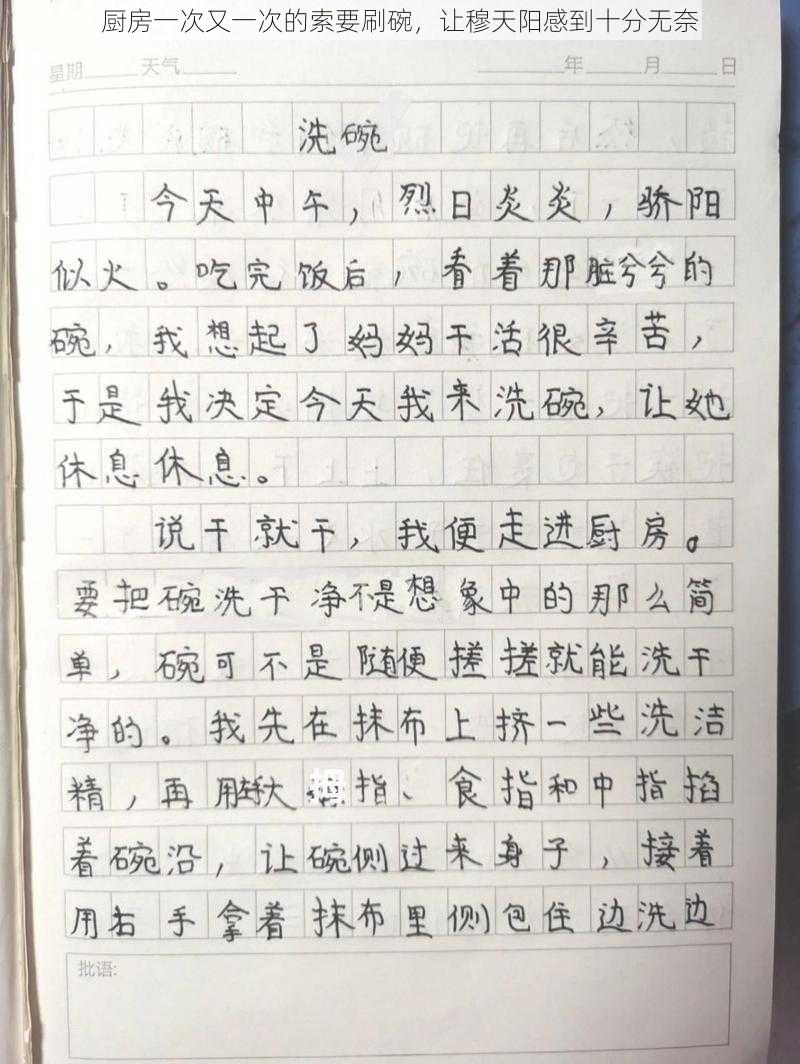 厨房一次又一次的索要刷碗，让穆天阳感到十分无奈
星期 天气 年 月 日
洗碗
今天中午，烈日炎炎，骄阳
似火。吃完饭后，看着那脏兮兮的
碗，我想起了妈妈干活很辛苦，
于是我决定今天我来洗碗，让她
休息休息。
说干就干，我便走进厨房。
要把碗洗干净不是想象中的那么简
单，碗可不是随便搓搓就能洗干
净的。我先在抹布上挤一些洗洁
精，再用左手大拇指、食指和中指掐
着碗沿，让碗侧过来身子，接着
用右手拿着抹布里侧包住边洗边
批语: